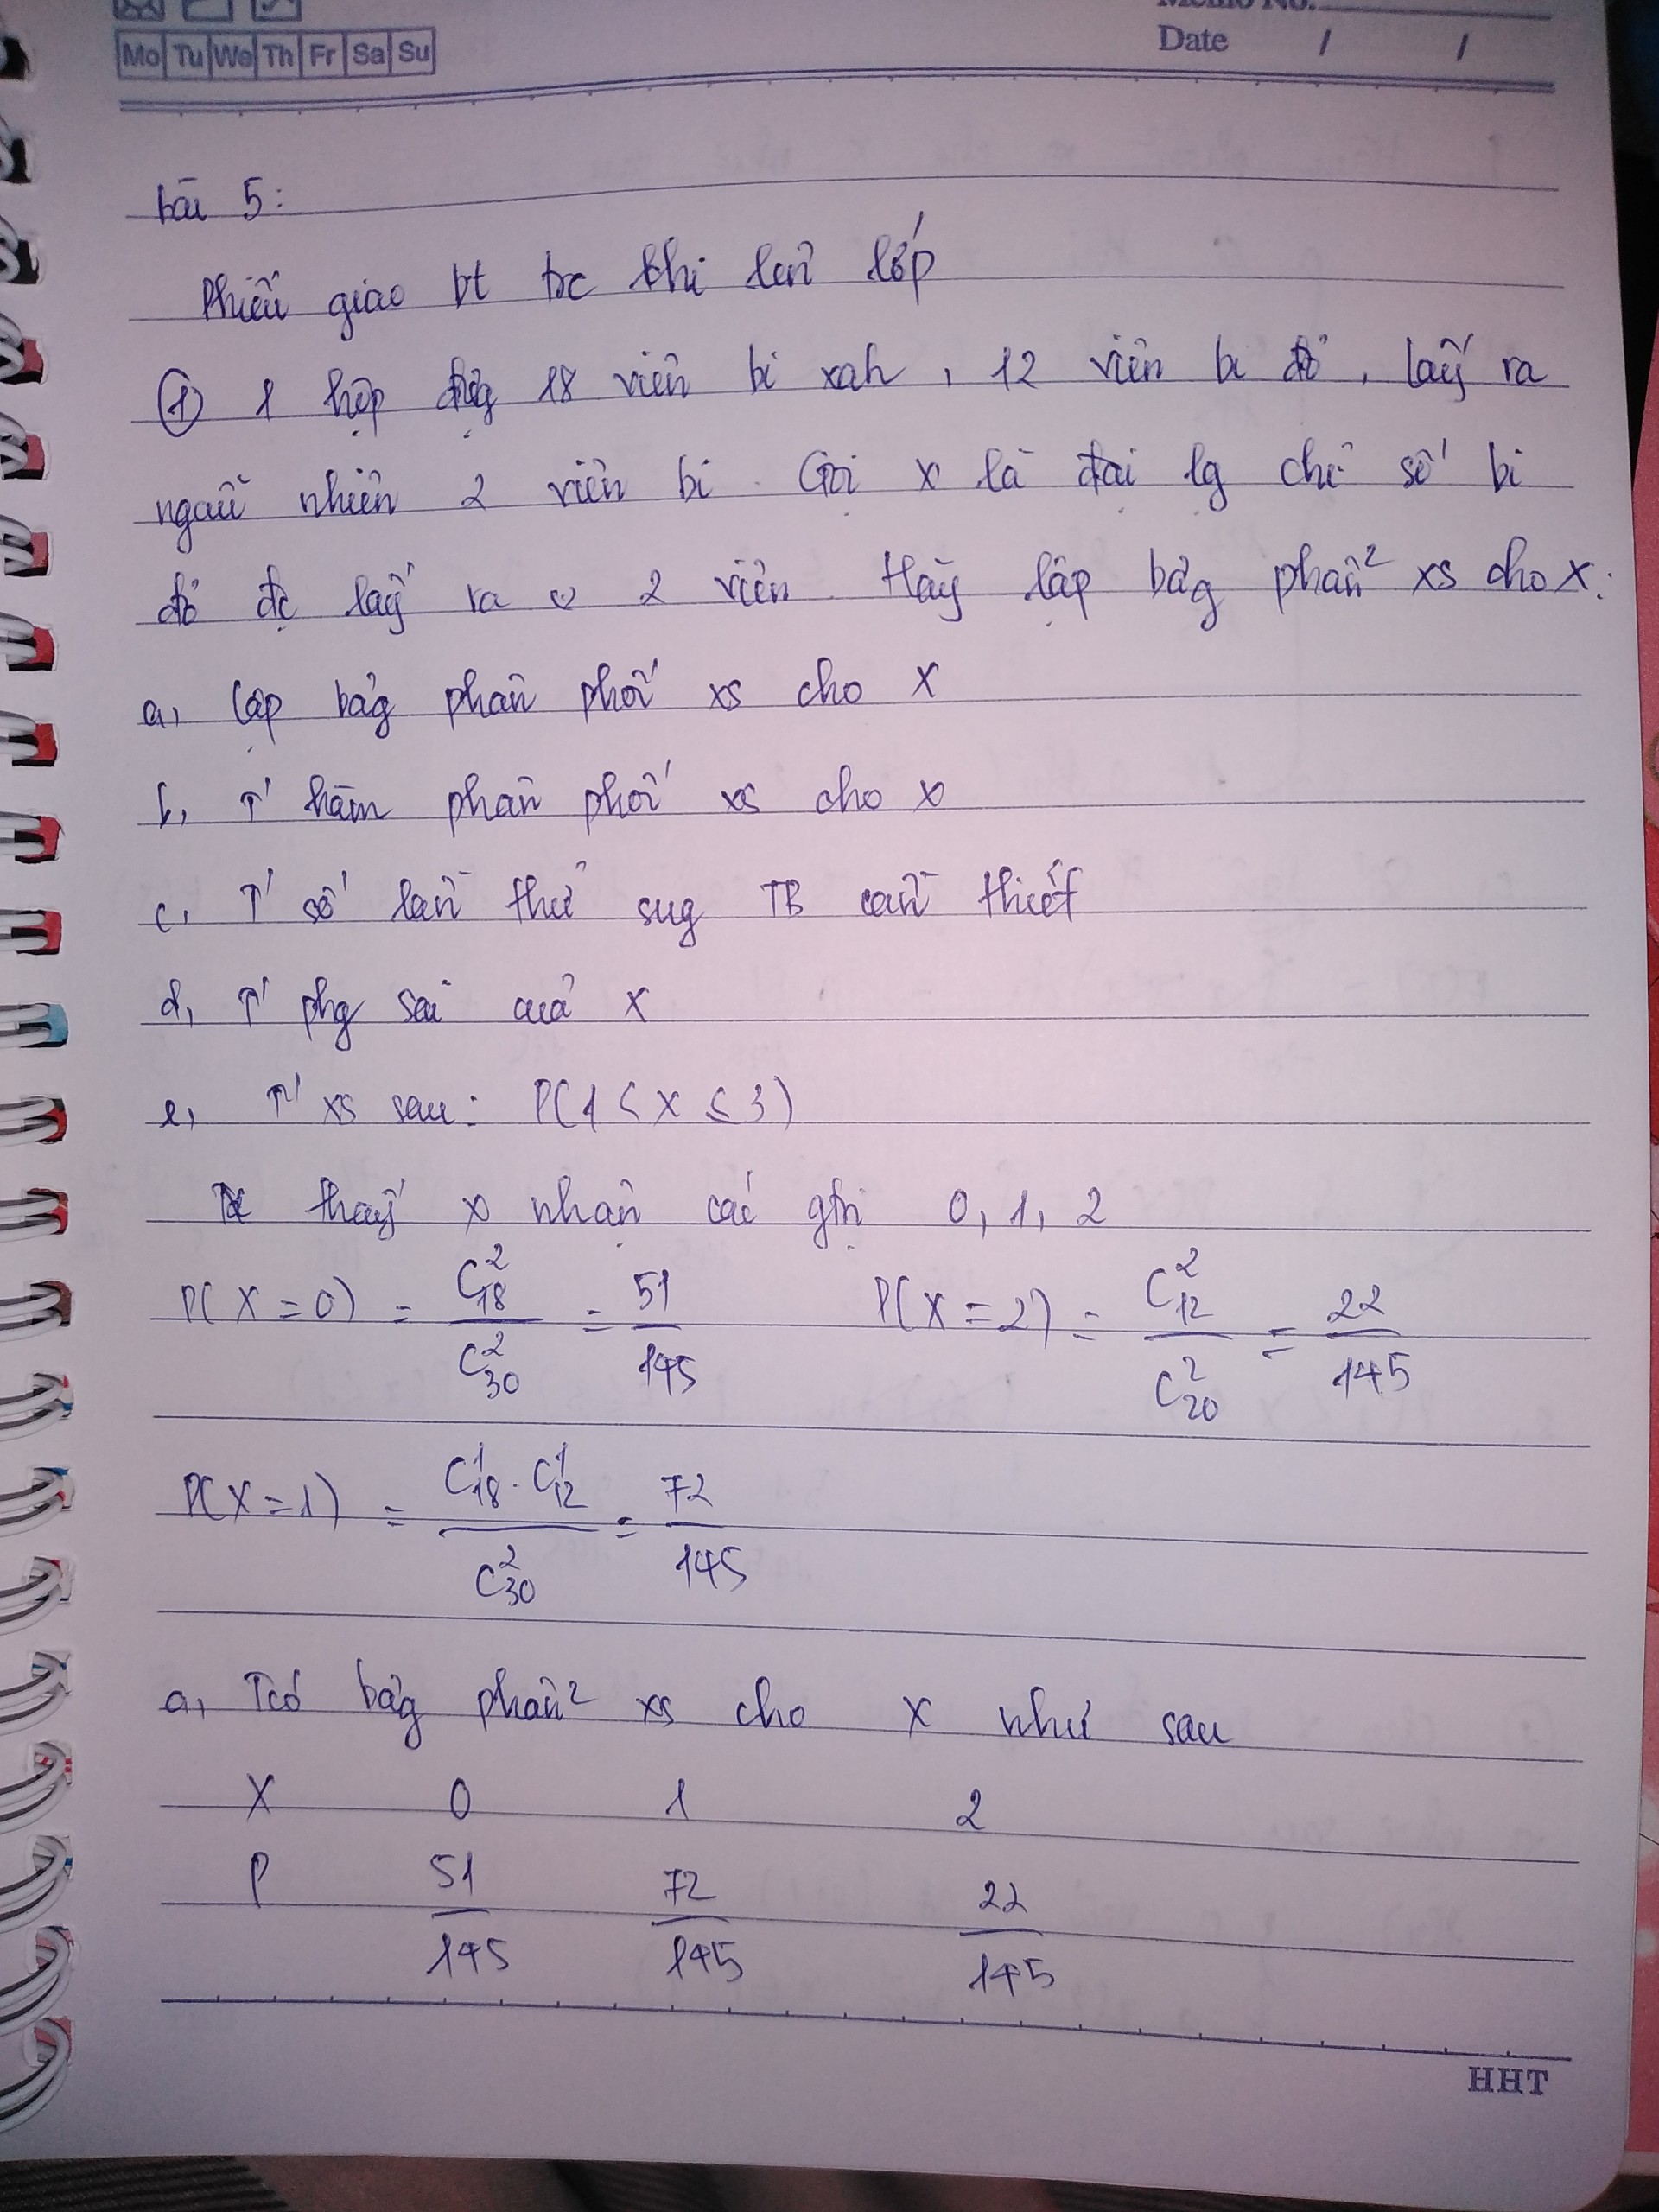 Memo No.
Mo Tu We Th Fr Sa Su
Date / /
bài 5:
Phiếu giao bt trc khi lên lớp
① 1 hộp đựg 18 viên bi xah, 12 viên bi đỏ, lấy ra
ngẫu nhiên 2 viên bi. Gọi X là đại lg chỉ số bi
đỏ đc lấy ra 2 viên. Hãy lập bảg phân² xs cho X:
a, Lập bảg phân phối xs cho X
b, T' hàm phân phối xs cho X
c, T' số lần thử sug TB cần thiết
d, T' phg sai cuả X
e, T' xs sau: P(1 < X ≤ 3)
thấy X nhận các gtri 0, 1, 2
P(X=0) = C²₁₈ / C²₃₀ = 51/145 P(X=2) = C²₁₂ / C²₂₀ = 22/145
P(X=1) = C¹₁₈ . C¹₁₂ / C²₃₀ = 72/145
a, Tcó bảg phân² xs cho X như sau
X 0 1 2
P 51/145 72/145 22/145
HHT